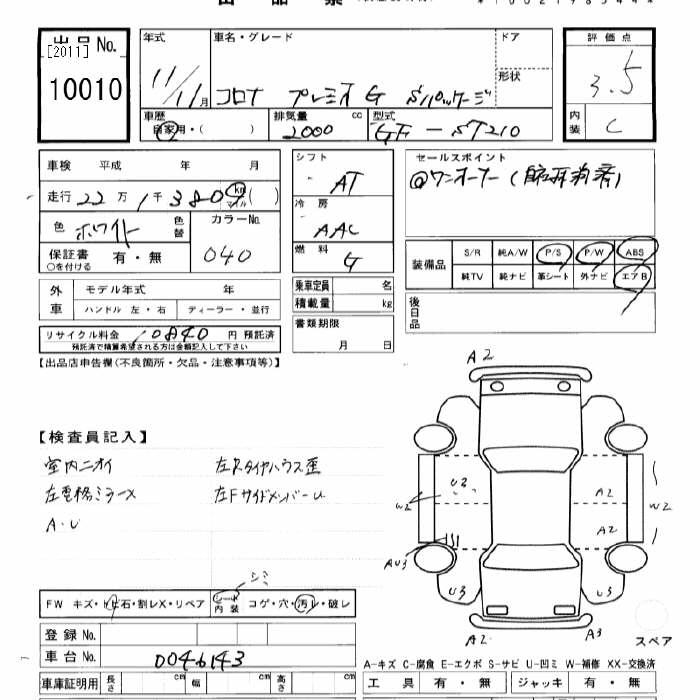 出品票
[2011]
出品No.
10010
年式
11/11月
車名・グレード
コロナ プレミオ G Sパッケージ
ドア
形状
評価点
3.5
内装
C
車歴
自家用・( )
排気量 cc
2000
型式
GF-ST210
車検 平成 年 月
走行 22万1千380 km マイル ( )
色 ホワイト 色替
カラーNo.
040
保証書 有・無
○を付ける
シフト
AT
冷房
AAC
燃料
G
セールスポイント
@ワンオーナー
装備品
S/R 純A/W P/S P/W ABS
純TV 純ナビ 革シート 外ナビ エアB
外車
モデル年式 年
ハンドル 左・右 ディーラー・並行
乗車定員 名
積載量 kg
後日品
書類期限
月 日
リサイクル料金 10840 円 預託済
預託済で積算希望される方は金額記入して下さい
【出品店申告欄(不良箇所・欠品・注意事項等)】
【検査員記入】
室内ニオイ 左Rタイヤハウス歪
左電格ミラーX 左FサイドメンバーU
A・U
A2
U2
W2
A2
W2
A2
AU3
U3
U3
A2
A3
スペア
シミ
FW キズ・トビ石・割レX・リペア
シート内装 コゲ・穴・汚レ・破レ
登録No.
車台No. 0046143
車庫証明用 長さ cm 幅 cm 高さ cm
A-キズ C-腐食 E-エクボ S-サビ U-凹ミ W-補修 XX-交換済
工具 有・無 ジャッキ 有・無